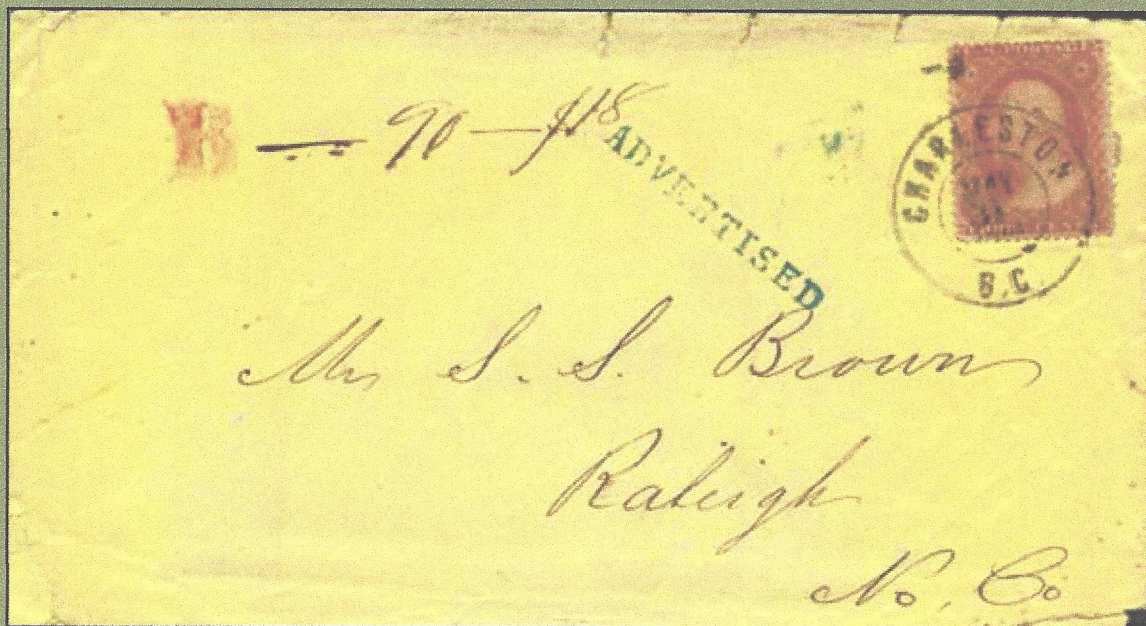 B — 90 —
ADVERTISED
CHARLESTON
MAY
31
S.C.
Mr S. S. Brown
Raleigh
No. Co